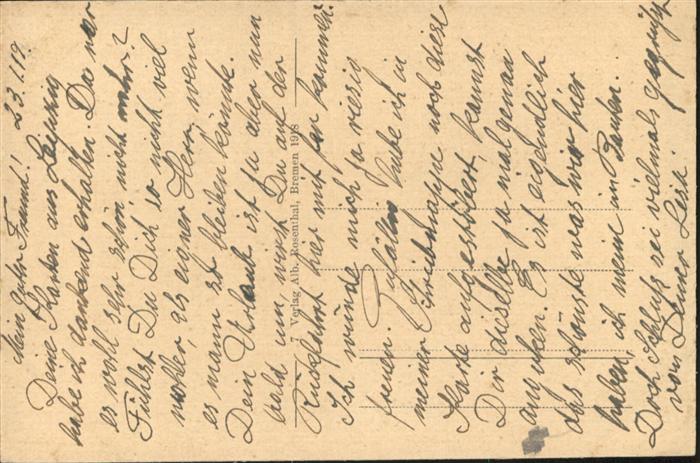 Mein guter Freund! 23.1.19.
Deine Karten aus Leipzig
habe ich dankend erhalten. Da war
es wohl sehr schön, nicht wahr?
Fühlst Du Dich so nicht viel
wohler, als eigner Herr, wenn
es mann so bleiben könnte.
Dein Urlaub ist ja aber nun
bald um, wirst Du auf der
Rückfahrt hier mit ran kommen?
Ich würde mich ja riesig
freuen. Zufällig habe ich in
meiner Schreibmappe noch diese
Karte aufgestöbert, kannst
Dir dieselbe ja mal genau
ansehen. Es ist eigentlich
das schönste was wir hier
haben, ich meine im Bauten.
Doch Schluß sei vielmals gegrüßt
von Deiner
Verlag Alb. Rosenthal, Bremen 1918